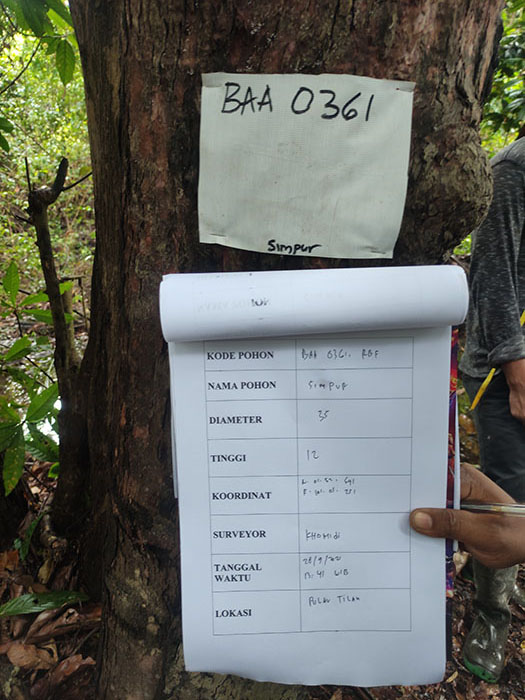 BAA 0361
Simpur
KODE POHON BAA 0361. RBF
NAMA POHON SIMPUR
DIAMETER 35
TINGGI 12
KOORDINAT
SURVEYOR KHOMIDI
TANGGAL
WAKTU WIB
LOKASI PULAU TILAN